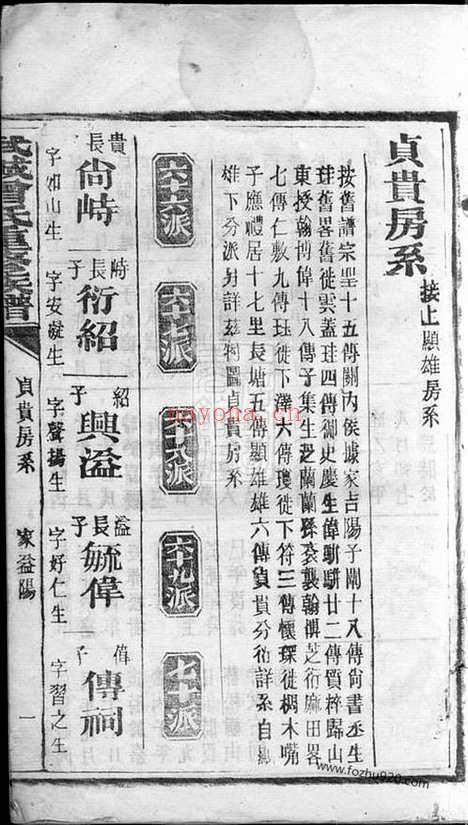 貞貴房系
接上顯雄房系
按舊譜宗聖十五傳關內侯據家吉陽子闡十八傳尚書丞生
珪舊畧舊徙雲蓋珪四傳御史慶生偉駢駢廿二傳質粹歸山
東授翰博偉十八傳子集生芝蘭蘭孫袞襲翰撰芝衍麻田畧
七傳仁敷九傳珏徙下澤六傳瓊徙下符三傳懷琛徙棡木嘴
子應禮居十七里長塘五傳顯雄雄六傳貞貴分衍詳系自顯
雄下分派另詳茲特圖貞貴房系
六十六派
六十七派
六十八派
六十九派
七十派
貴長 尚峙 字如山生
峙長子 衍紹 字安凝生
紹子 興溢 字聲揚生
溢長子 毓偉 字好仁生
偉子 傳祠 字習之生
武城曾氏重修族譜
貞貴房系
家益陽
一
nayoha.cn
www.fozhu920.com